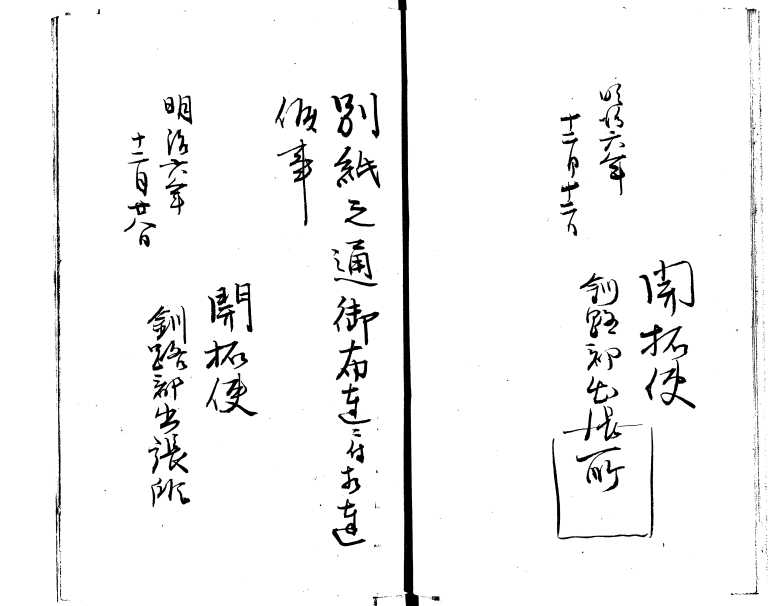 明治六年
十二月十二日
開拓使
釧路郡出張所
別紙之通御布達ニ付相達
候事
明治六年
十二月廿八日
開拓使
釧路郡出張所